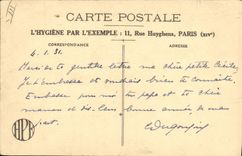 CARTE POSTALE
L'HYGIÈNE PAR L'EXEMPLE : 11, Rue Huyghens, PARIS (XIVe)
CORRESPONDANCE
ADRESSE
4.1.31.
Merci de ta gentille lettre ma chère petite Cécile,
Je t'embrasse et voudrais bien te connaître.
Embrasse pour moi ton papa et ta chère
maman et dis-leur bonne année de ma
part.
HPE